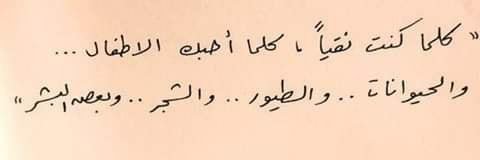 " كلما كنت نقياً ، كلما أحبك الاطفال ...
والحيوانات .. والطيور .. والشجر .. وبعض البشر "